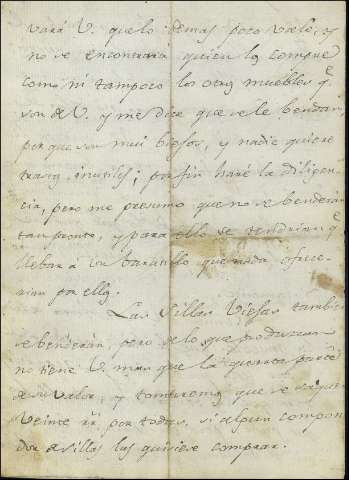 vará V. que lo demas poco vale, y
no se encontrará quien los compre
como ni tampoco los otros muebles q.e
son de V. y me dice que se le bendan,
por que son mui biejos, y nadie quiere
trastos inutiles; por fin haré la diligen-
cia, pero me presumo que no se benderán
tan pronto, y para ello se tendrian q.e
llebar á un baratillo que nada ofrece-
rian por ellos.
Las Sillas Viejas tambien
se benderán, pero de lo que produzcan
no tiene V. mas que la quarta parte
de su valor, y tomaremos que se saquen
Veinte rr. por todas, si algun compon
dor de sillas las quisiese comprar.